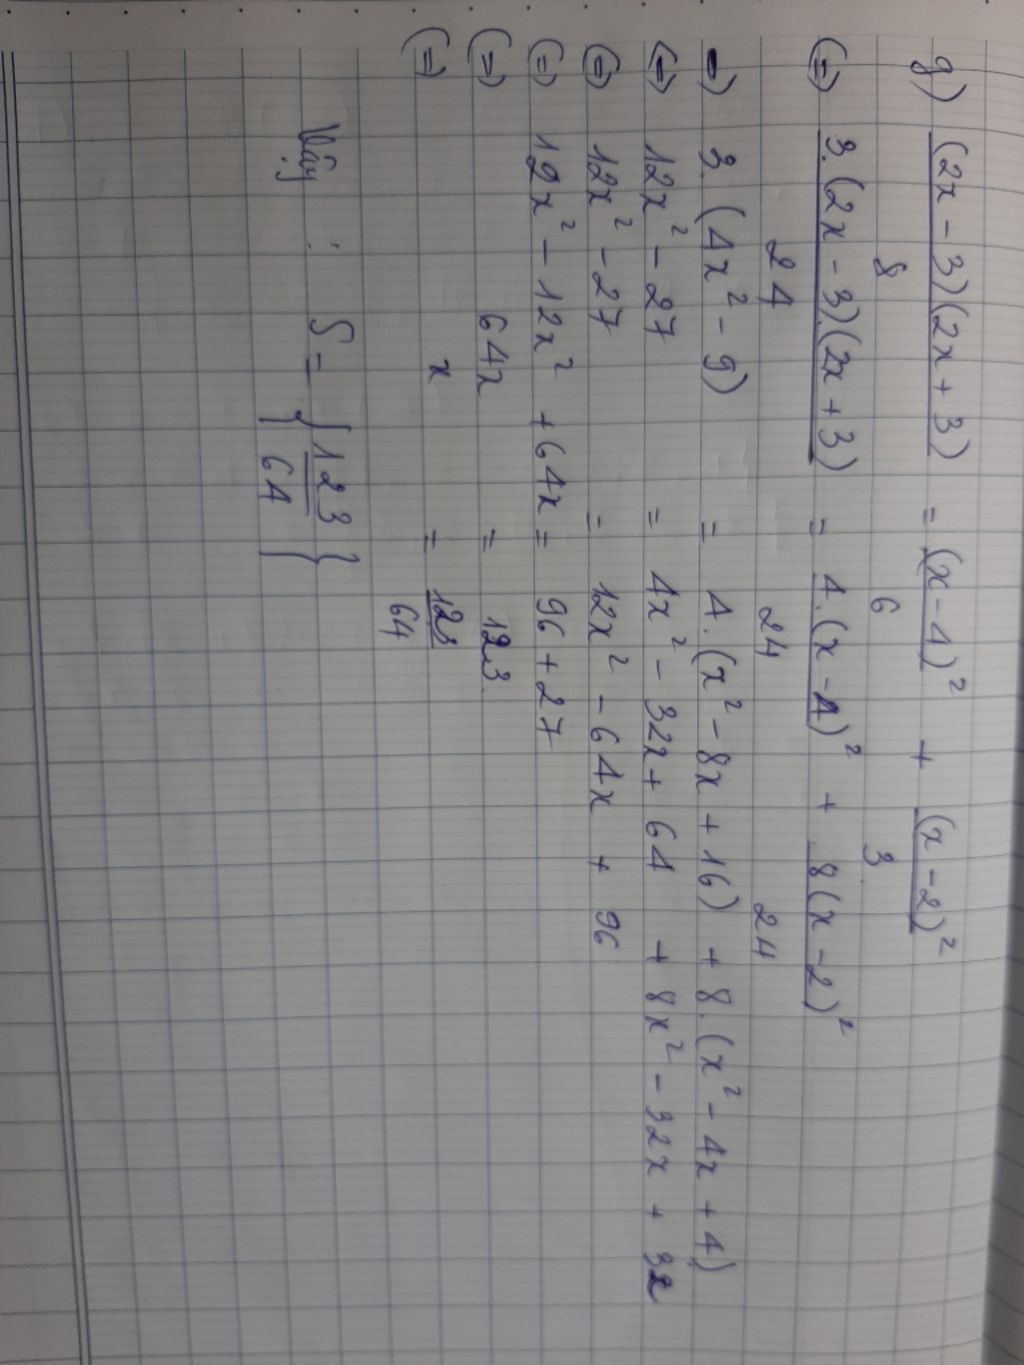 g) (2x - 3)(2x + 3) = (x - 4)² + (x - 2)²
8 6 3
(=) 3.(2x - 3).(2x + 3) = 4.(x - 4)² + 8(x - 2)²
24 24 24
=) 3.(4x² - 9) = 4.(x² - 8x + 16) + 8.(x² - 4x + 4)
(=) 12x² - 27 = 4x² - 32x + 64 + 8x² - 32x + 32
(=) 12x² - 27 = 12x² - 64x + 96
(=) 12x² - 12x² + 64x = 96 + 27
(=) 64x = 123
(=) x = 123
64
Vậy : S = { 123 }
{ 64 }